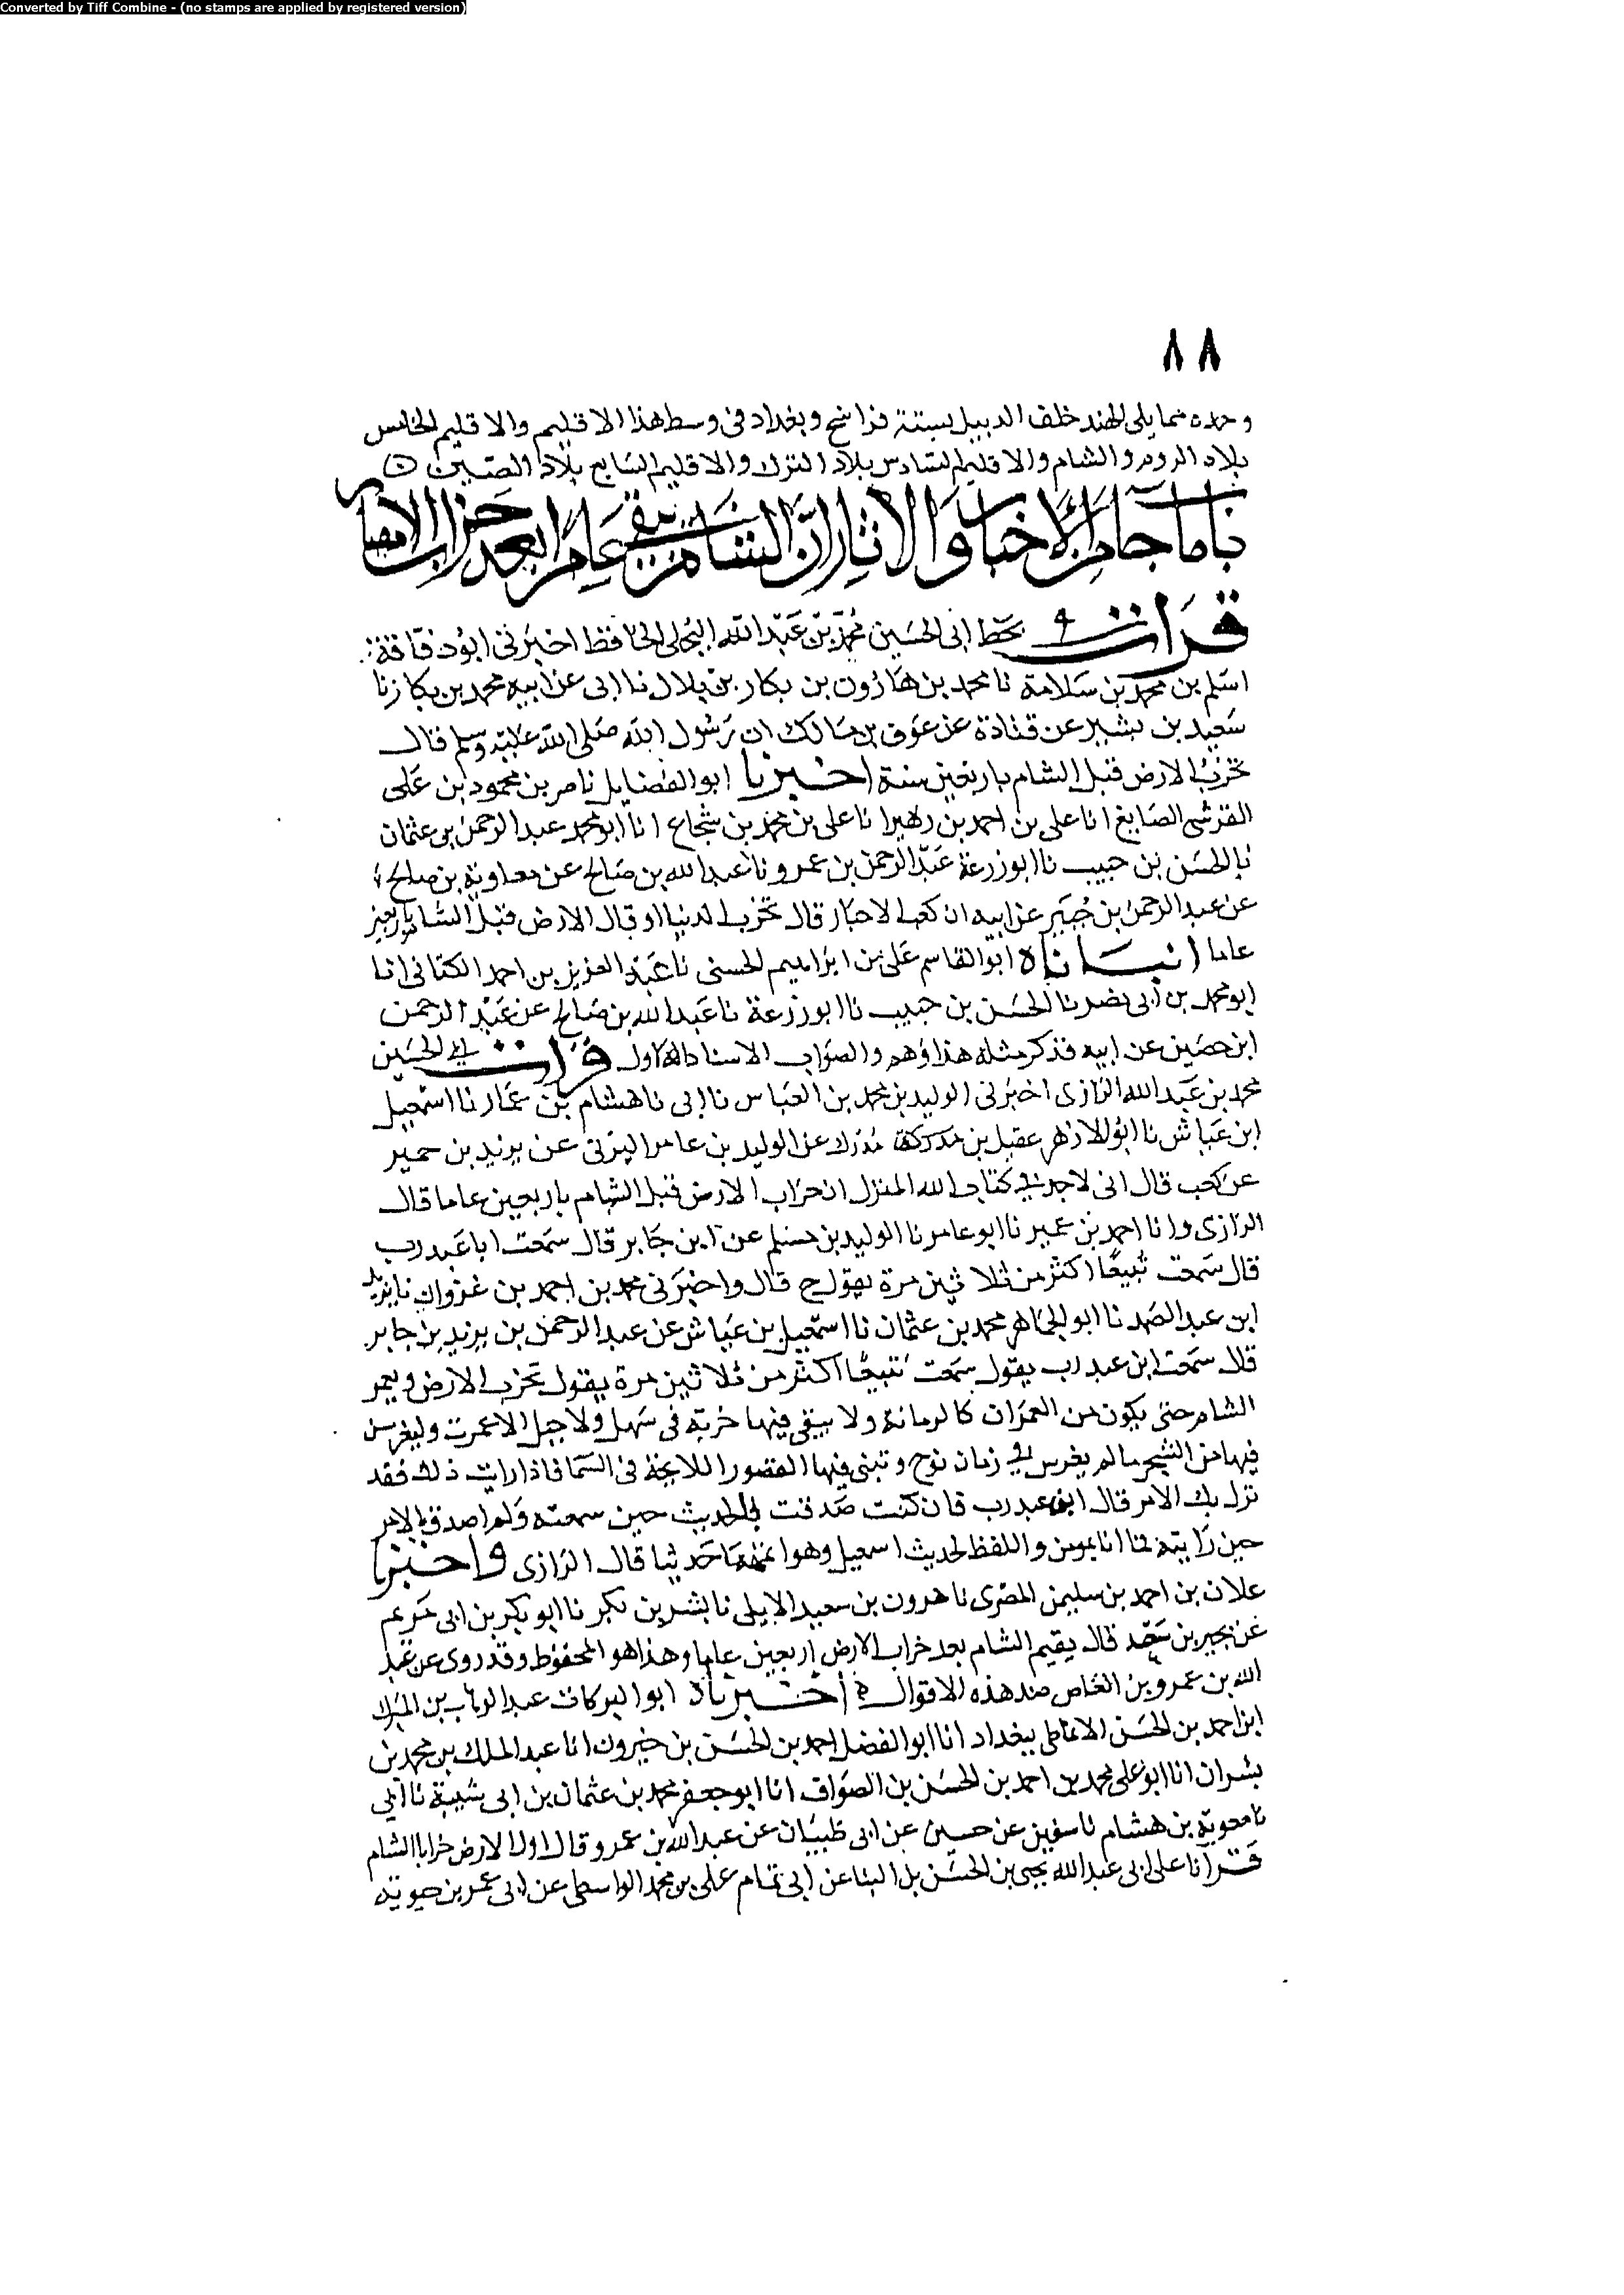 Converted by Tiff Combine - (no stamps are applied by registered version)
٨٨
وحده مما يلى الهند خلف الدبيل بستة فراسخ وبغداد فى وسط هذا الاقليم والاقليم الخامس
بلاد الروم والشام والاقليم السادس بلاد الترك والاقليم السابع بلاد الصين
باب ما جا من الاخبار والاثار ان الشام يبقى عامرا بعد خراب الامصار
قرات بخط ابى الحسين محمد بن عبد الله البجلى الحافظ اخبرنى ابو ذفافة
اسلم بن محمد بن سلامة نا محمد بن هارون بن بكار بن بلال نا ابى عن ابيه محمد بن بكار نا
سعيد بن بشير عن قتادة عن عوف بن مالك ان رسول الله صلى الله عليه وسلم قال
تخرب الارض قبل الشام باربعين سنة اخبرنا ابو الفضايل ناصر بن محمود بن على
القرشى الصايغ انا على بن احمد بن زهير انا على بن محمد بن شجاع انا ابو محمد عبد الرحمن بن عثمان
نا الحسن بن حبيب نا ابو زرعة عبد الرحمن بن عمرو نا عبد الله بن صالح عن معاوية بن صالح
عن عبد الرحمن بن جبير عن ابيه ان كعب الاحبار قال تخرب الدنيا او قال الارض قبل الشام باربعين
عاما انبانا ابو القاسم على بن ابراهيم الحسنى نا عبد العزيز بن احمد الكتانى انا
ابو محمد بن ابى نصر نا الحسن بن حبيب نا ابو زرعة نا عبد الله بن صالح عن عبد الرحمن
ابن حصين عن ابيه فذكر مثله هذا وهم والصواب الاسناد الاول قرات ابى الحسين
محمد بن عبد الله الرازى اخبرنى الوليد بن محمد بن العباس نا ابى نا هشام بن عمار نا اسمعيل
ابن عياش نا ابو الازهر عقيل بن مدرك عن الوليد بن عامر اليزنى عن يزيد بن حمير
عن كعب قال انى لاجد فى كتاب الله المنزل ان خراب الارض قبل الشام باربعين عاما قال
الرازى وانا احمد بن عمير نا ابو عامر نا الوليد بن مسلم عن ابن جابر قال سمعت ابا عبد رب
قال سمعت تبيعا اكثر من ثلاثين مرة يقول ح قال واخبرنى محمد بن احمد بن غزوان نا يزيد
ابن عبد الصمد نا ابو الجماهر محمد بن عثمان نا اسمعيل بن عياش عن عبد الرحمن بن يزيد بن جابر
قال سمعت ابن عبد رب يقول سمعت تبيعا اكثر من ثلاثين مرة يقول تخرب الارض ويعمر
الشام حتى يكون من العمران كالرمانة ولا يبقى فيها خربة فى سهل ولا جبل الا عمرت وليغرسن
فيها من الشجر ما لم يغرس فى زمان نوح وتبنى فيها القصور اللايحة فى السما فاذا رايت ذلك فقد
نزل بك الامر قال ابن عبد رب فان كنت صدقت فى الحديث حين سمعته ولم اصدق بالامر
حين رايته فما انا بمومن واللفظ لحديث اسمعيل وهو اتمهما حديثا قال الرازى واخبرنا
علان بن احمد بن سليمن المصرى نا هرون بن سعيد الايلى نا بشر بن بكر نا ابو بكر بن ابى مريم
عن بحير بن سعد قال يقيم الشام بعد خراب الارض اربعين عاما وهذا هو المحفوظ وقد روى عن عبد
الله بن عمرو بن العاص ضد هذه الاقوال اخبرناه ابو البركات عبد الوهاب بن المبارك
ابن احمد بن الحسن الانماطى ببغداد انا ابو الفضل احمد بن الحسن بن خيرون انا عبد الملك بن محمد بن
بشران انا ابو على محمد بن احمد بن الحسن بن الصواف انا ابو جعفر محمد بن عثمان بن ابى شيبة نا ابى
نا معوية بن هشام نا سفين عن حسين عن ابى ظبيان عن عبد الله بن عمرو قال اول الارض خرابا الشام
قرانا على ابى عبد الله يحيى بن الحسن بن البنا عن ابى تمام على بن محمد الواسطى عن ابى عمر بن حيويه